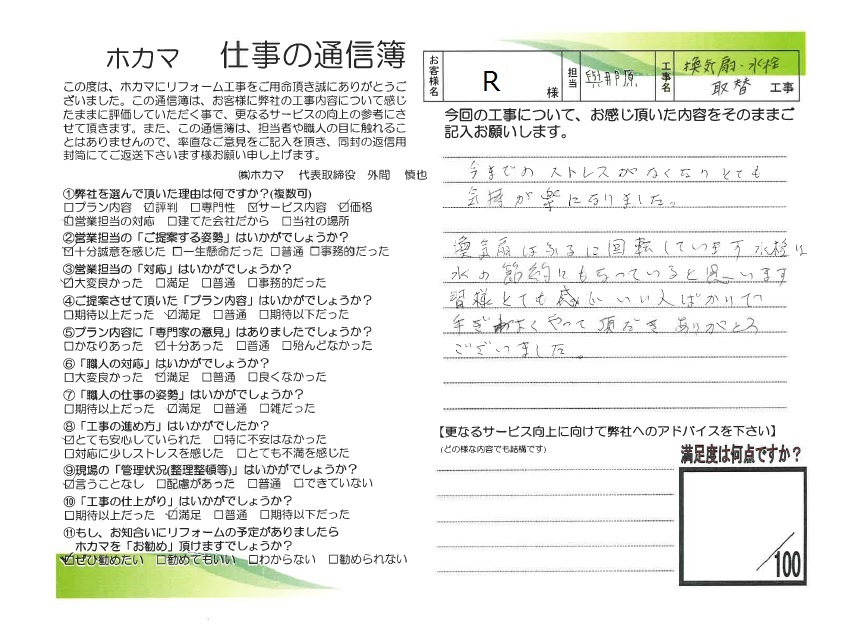 ホカマ 仕事の通信簿
この度は、ホカマにリフォーム工事をご用命頂き誠にありがとうご
ざいました。この通信簿は、お客様に弊社の工事内容について感じ
たままに評価していただく事で、更なるサービスの向上の参考にさ
せて頂きます。また、この通信簿は、担当者や職人の目に触れるこ
とはありませんので、率直なご意見をご記入を頂き、同封の返信用
封筒にてご返送下さいます様お願い申し上げます。
㈱ホカマ 代表取締役 外間 慎也
①弊社を選んで頂いた理由は何ですか?(複数可)
□プラン内容 ☑評判 □専門性 ☑サービス内容 ☑価格
☑営業担当の対応 □建てた会社だから □当社の場所
②営業担当の「ご提案する姿勢」はいかがでしょうか?
☑十分誠意を感じた □一生懸命だった □普通 □事務的だった
③営業担当の「対応」はいかがでしょうか?
☑大変良かった □満足 □普通 □事務的だった
④ご提案させて頂いた「プラン内容」はいかがでしょうか?
□期待以上だった ☑満足 □普通 □期待以下だった
⑤プラン内容に「専門家の意見」はありましたでしょうか?
□かなりあった ☑十分あった □普通 □殆んどなかった
⑥「職人の対応」はいかがでしょうか?
□大変良かった ☑満足 □普通 □良くなかった
⑦「職人の仕事の姿勢」はいかがでしょうか?
□期待以上だった ☑満足 □普通 □雑だった
⑧「工事の進め方」はいかがでしたか?
☑とても安心していられた □特に不安はなかった
□対応に少しストレスを感じた □とても不満を感じた
⑨現場の「管理状況(整理整頓等)」はいかがでしょうか?
☑言うことなし □配慮があった □普通 □できていない
⑩「工事の仕上がり」はいかがでしょうか?
□期待以上だった ☑満足 □普通 □期待以下だった
⑪もし、お知合いにリフォームの予定がありましたら
ホカマを「お勧め」頂けますでしょうか?
☑ぜひ勧めたい □勧めてもいい □わからない □勧められない
お客様名 R 様 担当 與那原 工事名 換気扇・水栓
取替 工事
今回の工事について、お感じ頂いた内容をそのままご
記入お願いします。
今までのストレスがなくなりとても
気持が楽になりました。
換気扇はふるに回転しています 水栓は
水の節約にもなっていると思います
皆様とても感じいい人ばかりで
手ぎわよくやって頂だき ありがとう
ございました。
【更なるサービス向上に向けて弊社へのアドバイスを下さい】
(どの様な内容でも結構です)
満足度は何点ですか?
/100